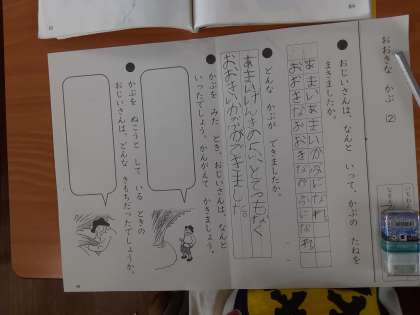 おおきな かぶ (2)
おじいさんは、なんと いって、かぶの たねを
まきましたか。
あまいあまいかぶになれ
おおきなおおきなかぶになれ
どんな かぶが できましたか。
あまいげんきのよい、とてつもなく
おおきいかぶができました。
かぶを みた とき、おじいさんは、なんと
いったでしょう。かんがえて かきましょう。
かぶを ぬこうと して いる ときの
おじいさんは、どんな きもちだったでしょうか。